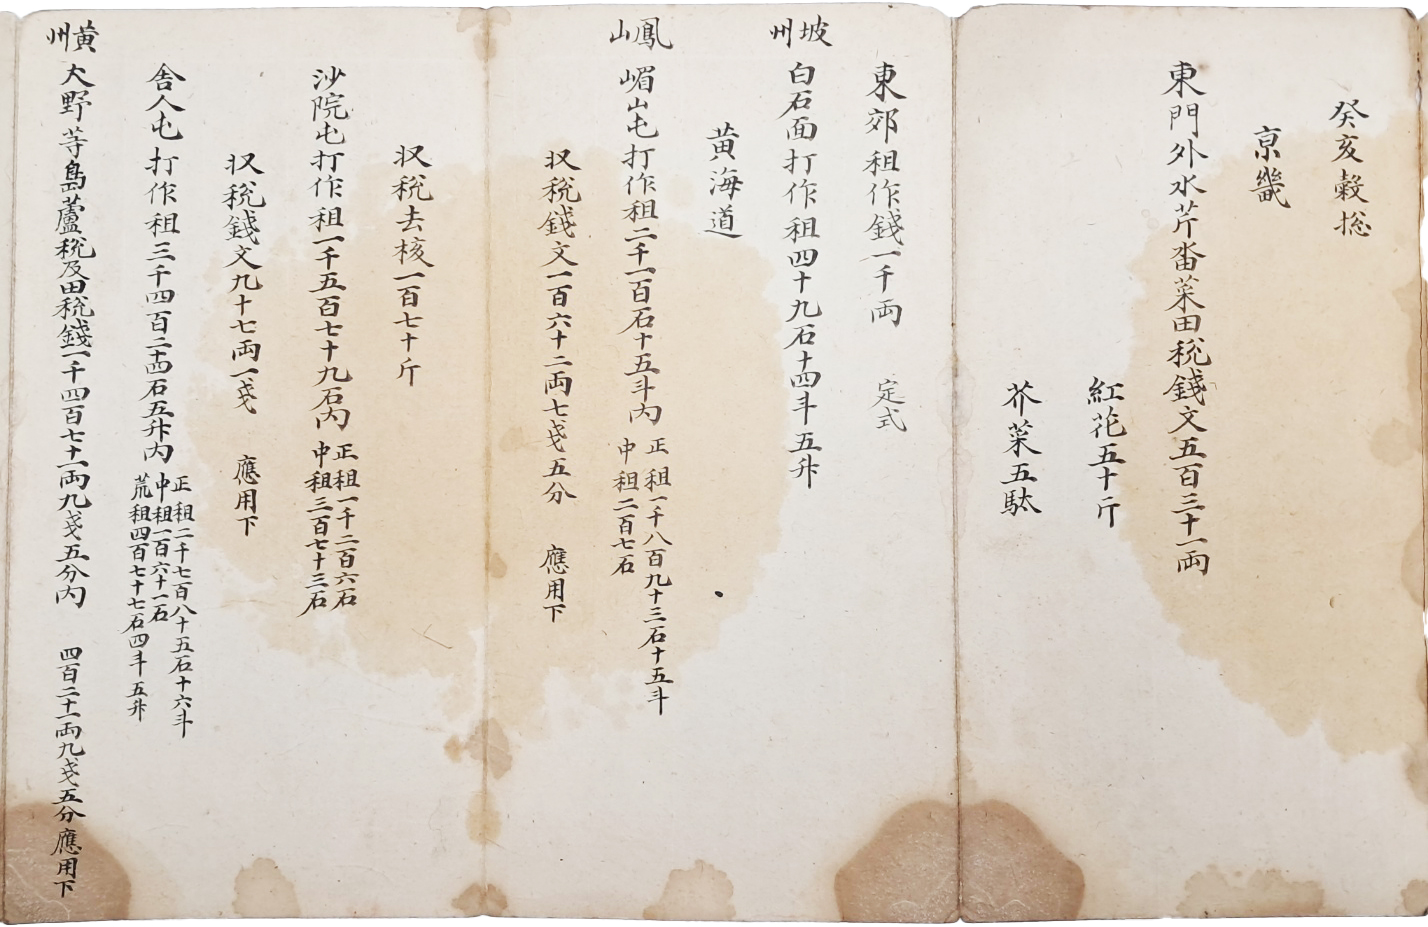 癸亥穀摠
京畿
東門外水芹畓菜田稅錢文五百三十一兩
紅花五十斤
芥菜五馱
東郊租作錢一千兩 定式
坡州 白石面打作租四十九石十四斗五升
黃海道
鳳山 嵋山屯打作租二千一百石十五斗內
正租一千八百九十三石十五斗
中租二百七石
収稅錢文一百六十二兩七戔五分 應用下
収稅去核一百七十斤
沙院屯打作租一千五百七十九石內
正租一千二百六石
中租三百七十三石
収稅錢文九十七兩一戔 應用下
舍人屯打作租三千四百二十四石五升內
正租二千七百八十五石十六斗
中租一百六十一石
荒租四百七十七石四斗五升
黃州 大野等島蘆稅及田稅錢一千四百七十一兩九戔五分內 四百二十一兩九戔五分應用下